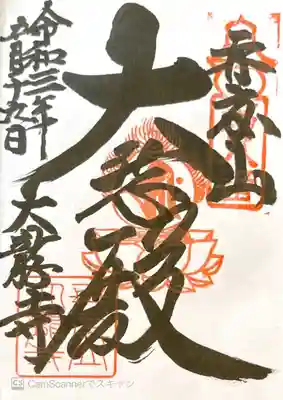 再度山
大悲殿
令和三年
五月十九日
大龍寺
CS CamScannerでスキャン